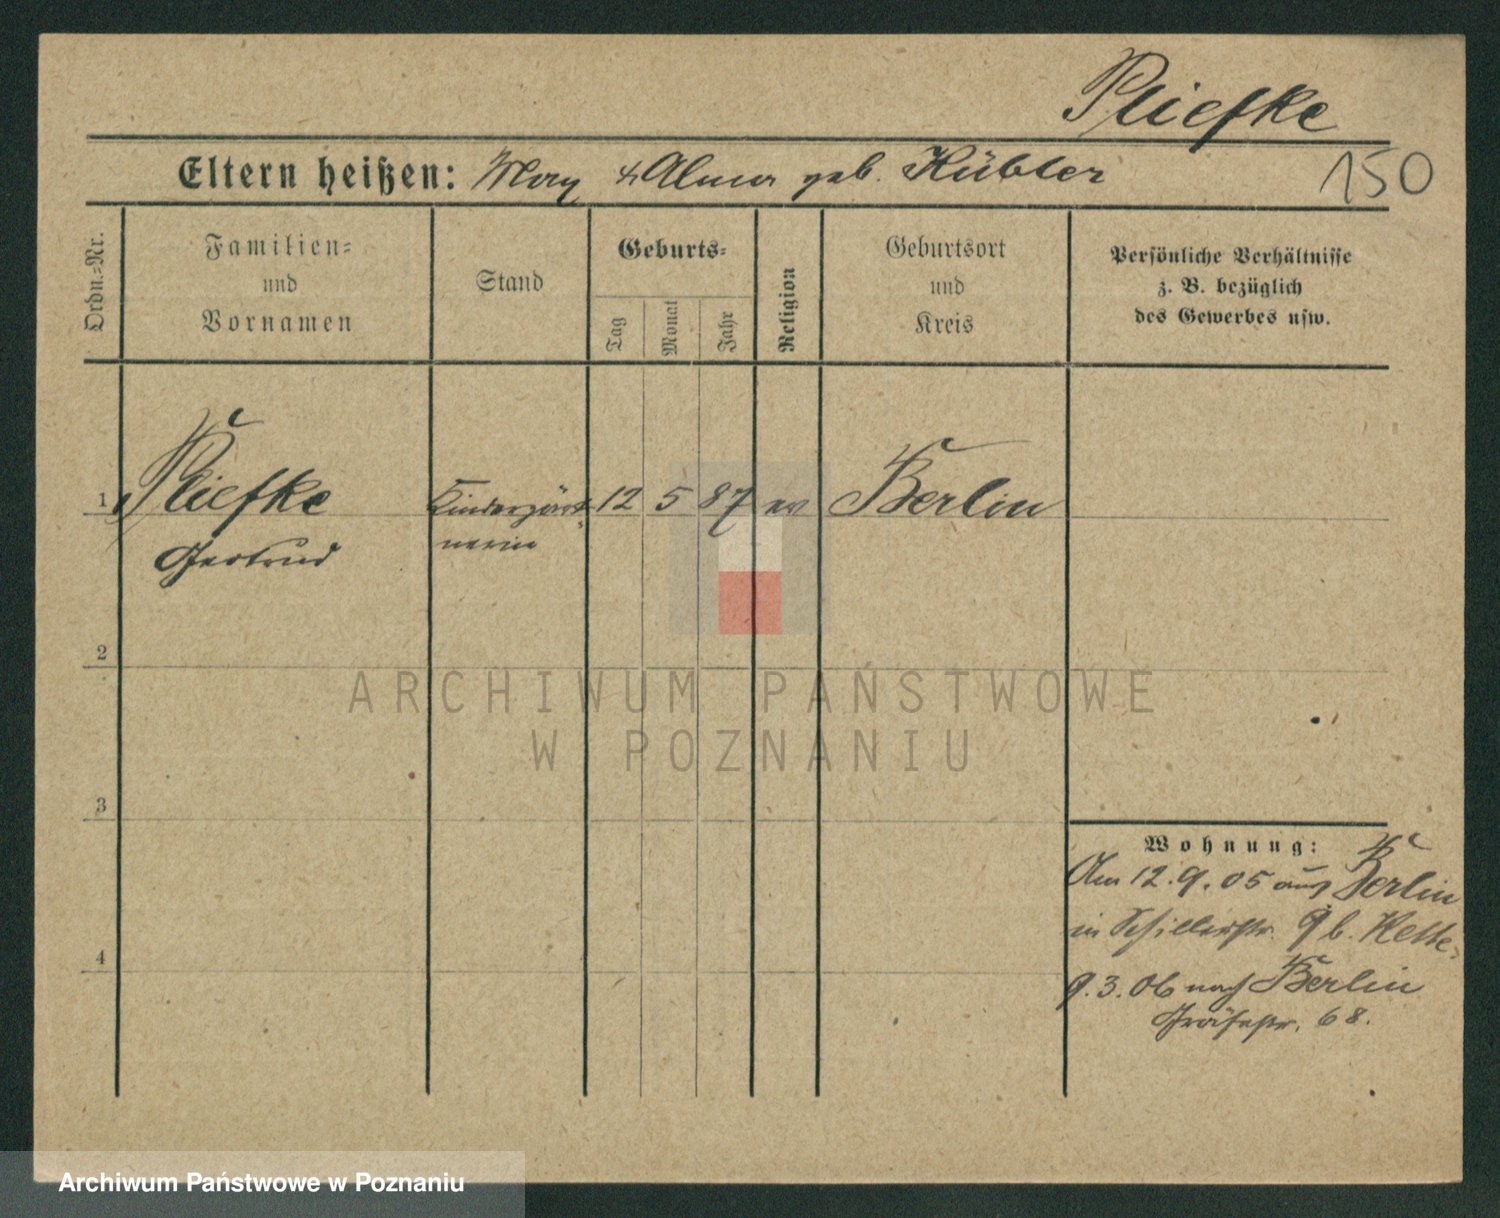 Pliefke
Eltern heißen: Max & Alma geb. Hübler
150
Ordn.=Nr.
Familien=
und
Vornamen
Stand
Geburts=
Tag
Monat
Jahr
Religion
Geburtsort
und
Kreis
Persönliche Verhältnisse
z. B. bezüglich
des Gewerbes usw.
1 Pliefke Kindergärt= 12 5 87 ev Berlin
Gertrud nerin
2
ARCHIWUM PAŃSTWOWE
W POZNANIU
3
Wohnung:
Am 12.9.05 aus Berlin
in Schillerstr. 9 b.
4
9.3.06 nach Berlin
Gräfestr. 68.
Archiwum Państwowe w Poznaniu